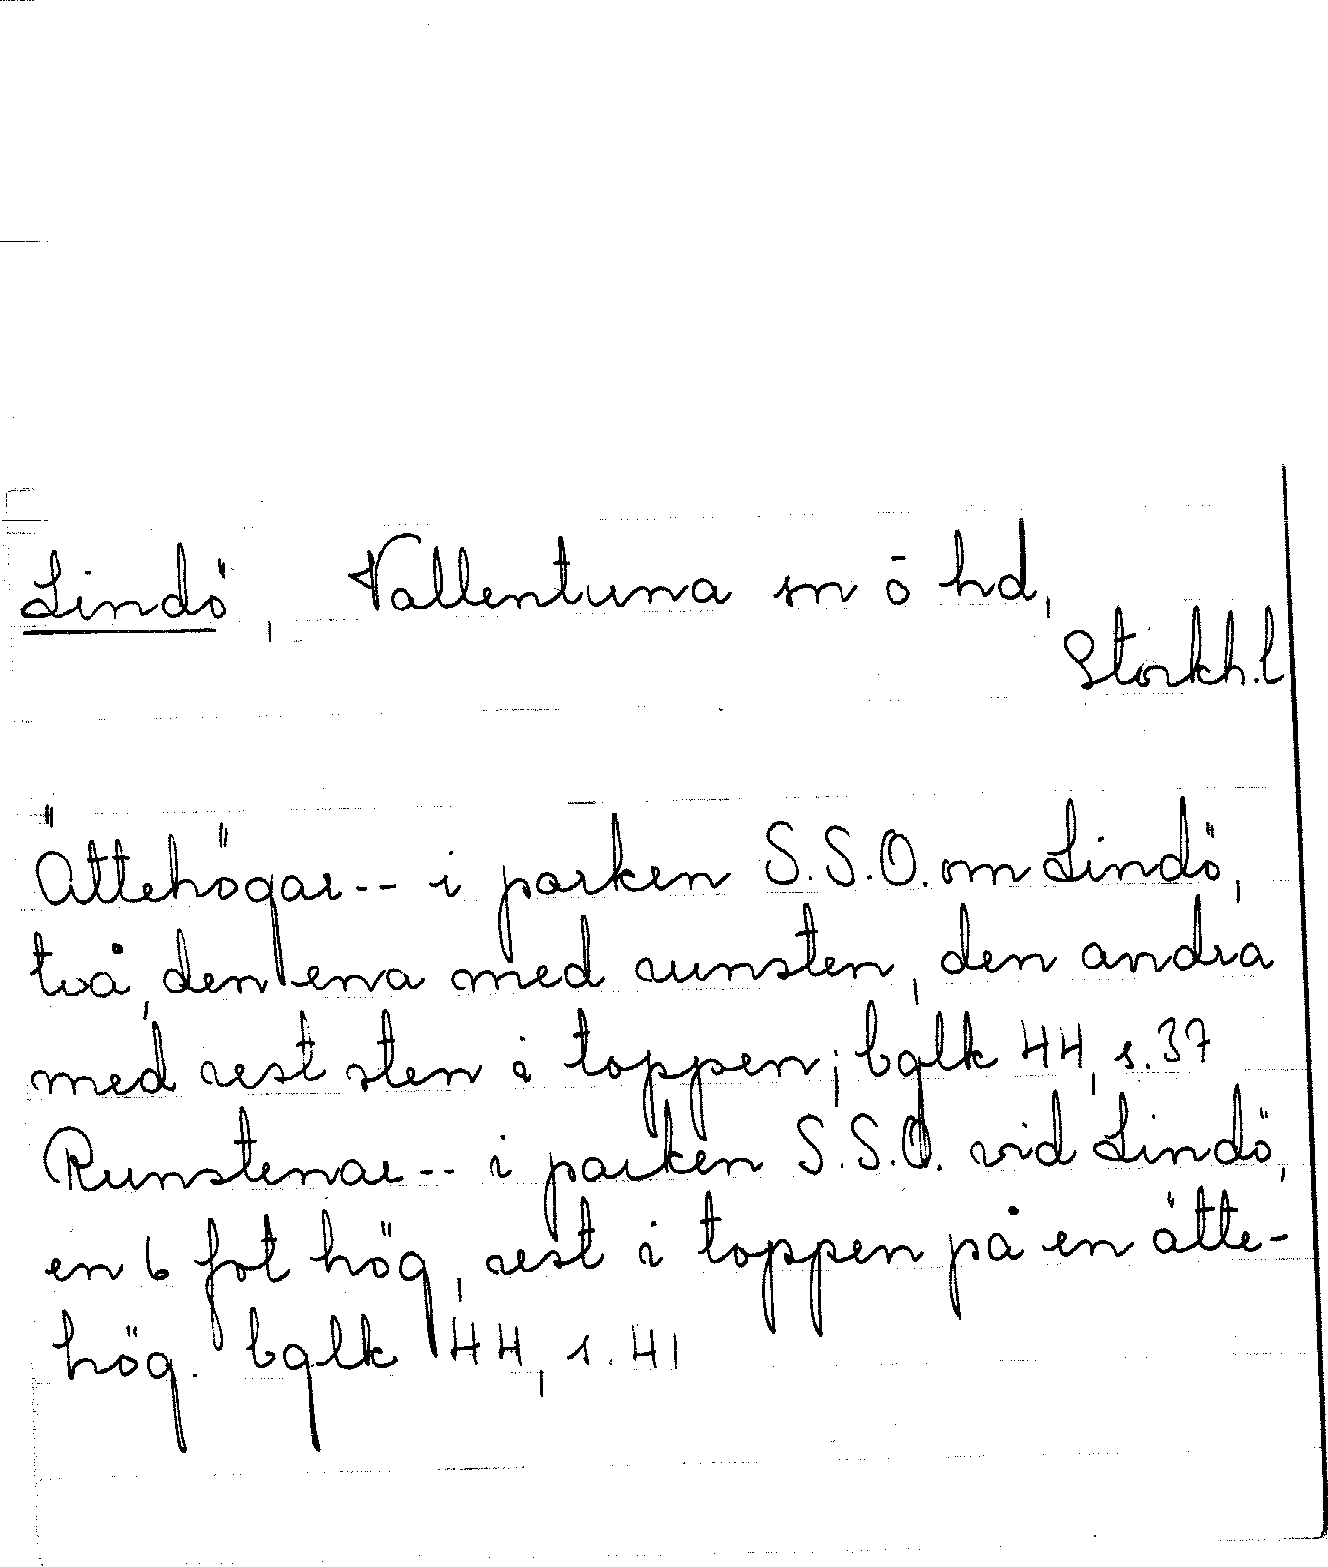 Lindö, Vallentuna sn ō hd,
Stockh.l
Ättehögar-- i parken S.S.O. om Lindö,
två, den ena med runsten, den andra
med rest sten i toppen; bglk 44, s. 37
Runstenar-- i parken S.S.O. vid Lindö,
en 6 fot hög, rest i toppen på en ätte-
hög. bglk 44, s. 41